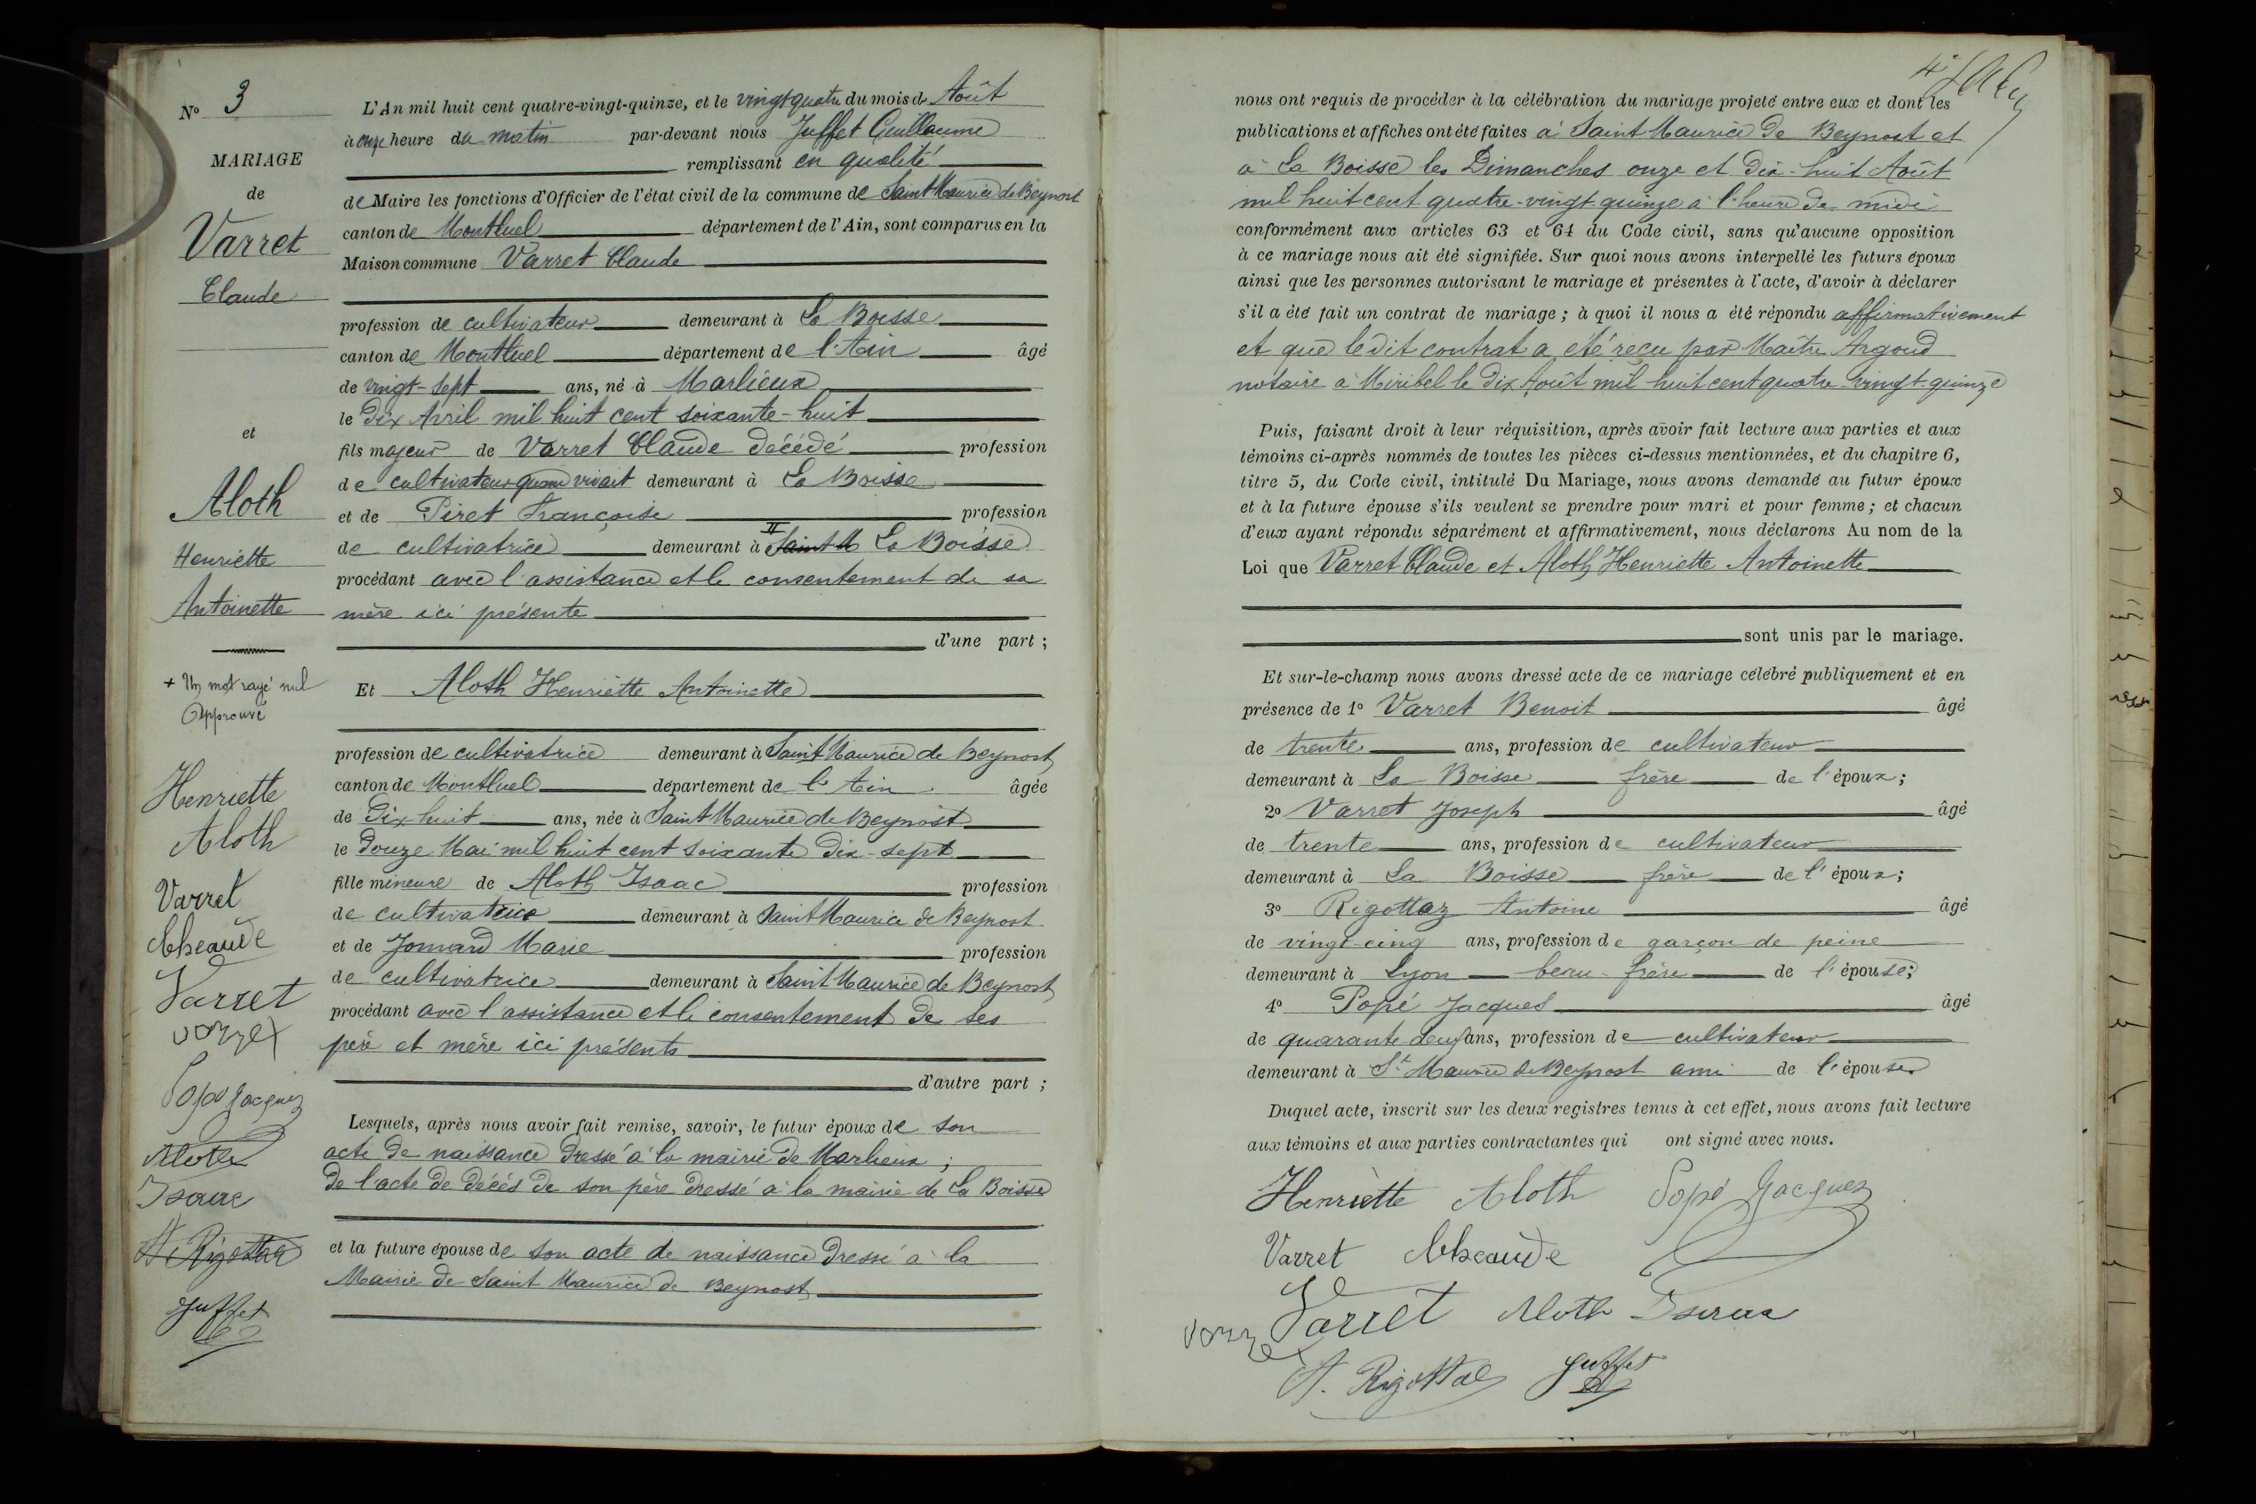 N° 3
MARIAGE
de
Varret
Claude
et
Aloth
Henriette
Antoinette
+ Un mot rayé nul
Approuvé
Henriette
Aloth
Varret
Cheaude
Varret
Popé Jacques
Aloth
Isaac
A. Rigottaz
Juffet
L'An mil huit cent quatre-vingt-quinze, et le vingt quatre du mois de Août
à onze heure du matin par-devant nous Juffet Guillaume
remplissant en qualité
de Maire les fonctions d'Officier de l'état civil de la commune de Saint Maurice de Beynost
canton de Montluel département de l'Ain, sont comparus en la
Maison commune Varret Claude
profession de cultivateur demeurant à La Boisse
canton de Montluel département de l'Ain âgé
de vingt-sept ans, né à Marlieux
le Dix Avril mil huit cent soixante-huit
fils majeur de Varret Claude décédé profession
de cultivateur quand vivait demeurant à La Boisse
et de Piret Françoise profession
de cultivatrice demeurant à Saint M La Boisse
procédant avec l'assistance et le consentement de sa
mère ici présente
d'une part ;
Et Aloth Henriette Antoinette
profession de cultivatrice demeurant à Saint Maurice de Beynost
canton de Montluel département de l'Ain âgée
de Dix huit ans, née à Saint Maurice de Beynost
le Douze Mai mil huit cent soixante Dix-sept
fille mineure de Aloth Isaac profession
de cultivatrice demeurant à Saint Maurice de Beynost
et de Jomard Marie profession
de cultivatrice demeurant à Saint Maurice de Beynost
procédant avec l'assistance et le consentement de ses
père et mère ici présents
d'autre part ;
Lesquels, après nous avoir fait remise, savoir, le futur époux de son
acte de naissance Dressé à la mairie de Marlieux ;
De l'acte de décès de son père Dressé à la mairie de La Boisse
et la future épouse de son acte de naissance Dressé à la
Mairie de Saint Maurice de Beynost
nous ont requis de procéder à la célébration du mariage projeté entre eux et dont les
publications et affiches ont été faites à Saint Maurice de Beynost et
à La Boisse les Dimanches onze et Dix-huit Août
mil huit cent quatre-vingt quinze à l'heure de midi
conformément aux articles 63 et 64 du Code civil, sans qu'aucune opposition
à ce mariage nous ait été signifiée. Sur quoi nous avons interpellé les futurs époux
ainsi que les personnes autorisant le mariage et présentes à l'acte, d'avoir à déclarer
s'il a été fait un contrat de mariage ; à quoi il nous a été répondu affirmativement
et que le dit contrat a été reçu par Maître Argoud
notaire à Miribel le dix Août mil huit cent quatre vingt quinze
Puis, faisant droit à leur réquisition, après avoir fait lecture aux parties et aux
témoins ci-après nommés de toutes les pièces ci-dessus mentionnées, et du chapitre 6,
titre 5, du Code civil, intitulé Du Mariage, nous avons demandé au futur époux
et à la future épouse s'ils veulent se prendre pour mari et pour femme ; et chacun
d'eux ayant répondu séparément et affirmativement, nous déclarons Au nom de la
Loi que Varret Claude et Aloth Henriette Antoinette
sont unis par le mariage.
Et sur-le-champ nous avons dressé acte de ce mariage célébré publiquement et en
présence de 1° Varret Benoit âgé
de trente ans, profession de cultivateur
demeurant à La Boisse frère de l'époux ;
2° Varret Joseph âgé
de trente ans, profession de cultivateur
demeurant à La Boisse frère de l'époux ;
3° Rigottaz Antoine âgé
de vingt-cinq ans, profession de garçon de peine
demeurant à Lyon beau-frère de l'épouse ;
4° Popé Jacques âgé
de quarante deux ans, profession de cultivateur
demeurant à St Maurice de Beynost ami de l'épouse
Duquel acte, inscrit sur les deux registres tenus à cet effet, nous avons fait lecture
aux témoins et aux parties contractantes qui ont signé avec nous.
Henriette Aloth Popé Jacques
Varret Cheaude
Varret Aloth Isaac
A. Rigottaz Juffet